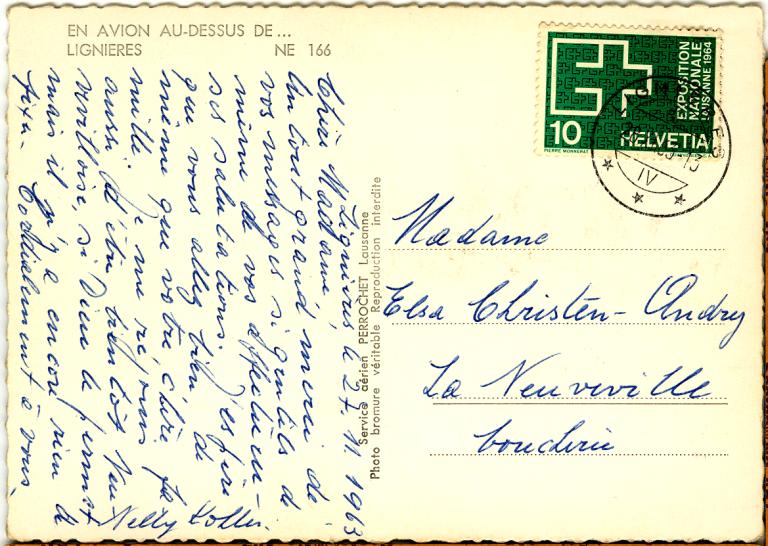 EN AVION AU-DESSUS DE...
LIGNIERES NE 166
Lignières, le 27. VI. 1963
Chère Madame,
Un tout grand merci de
vos messages si gentils de
même de vos affectueu-
ses salutations. J'espère
que vous allez bien de
même que votre chère fa
mille. Je me réjouis
aussi d'être bientôt Neu
vevilloise, si Dieu le permet
mais il n'y a encore rien de
fixé. Cordialement à vous.
Nelly
Photo Service aérien PERROCHET Lausanne
bromure véritable Reproduction interdite
EXPOSITION
NATIONALE
LAUSANNE 1964
10 HELVETIA
PIERRE MONNERAT
IV
Madame
Elsa Christen-Andry
La Neuveville
boucherie